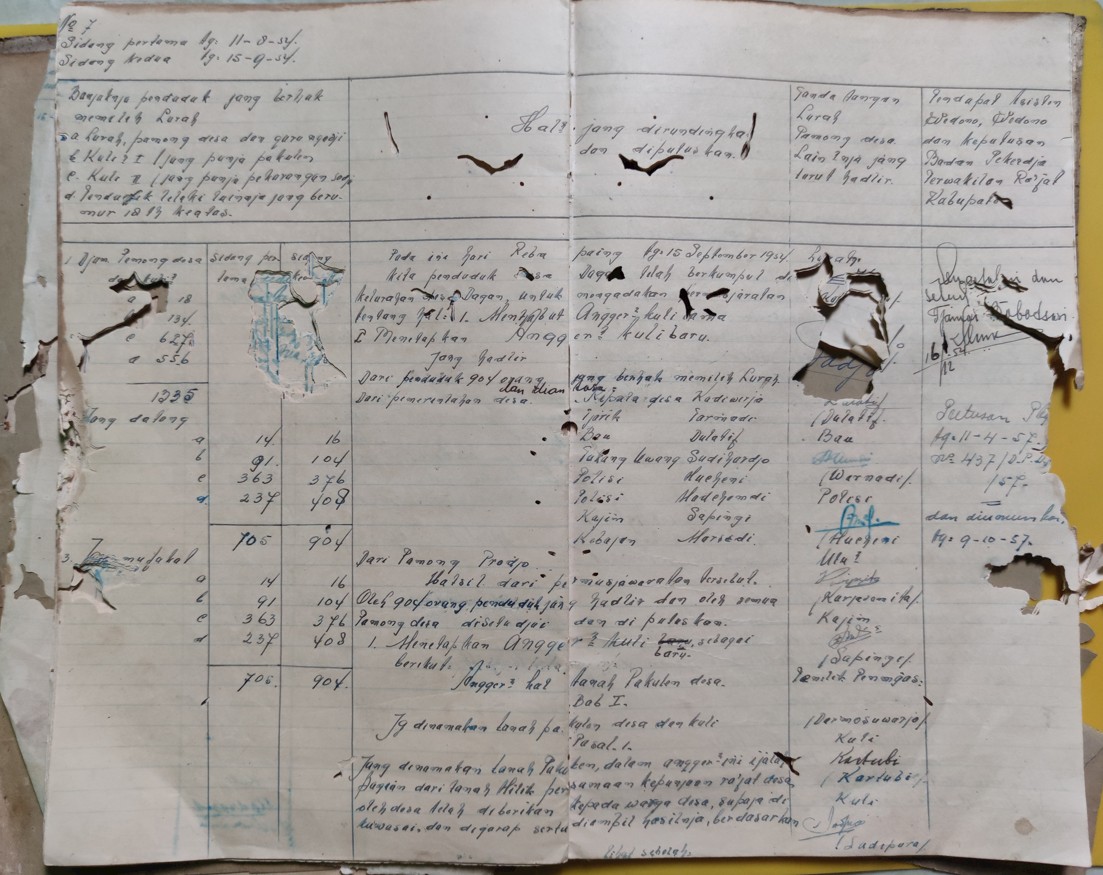 No 7
Sidang pertama tg. 11-8-54.
Sidang kedua tg. 15-9-54.
Banjaknja penduduk jang berhak
memilih Lurah
a Lurah, pamong desa dan guru ngadji
b Kuli² I (jang punja pakulen
c. Kuli II (jang punja pekarangan sadja
d Penduduk lelaki lainnja jang beru-
mur 18 th keatas.
Hal² jang dirundingkan
dan diputuskan.
Tanda tangan
Lurah
Pamong desa.
Lain²nja jang
turut hadlir.
Pendapat Asisten
Wedono, Wedono
dan keputusan
Badan Pekerdja
Perwakilan Ra'jat
Kabupaten
1. Djml Pamong desa
a 18
b 134.
c 627.
d 556
1335
Jang datang
a 14 16
b 91. 104
c 363 376
d. 237 408
705 904
3. mufakat
a 14 16
b 91 104
c 363 376
d 237 408
705. 904.
Sidang per-
tama
Sidang
Pada ini hari Rebo paing tg. 15 September 1954
kita penduduk desa Dagan telah berkumpul di
kelurahan desa Dagan, untuk mengadakan
tentang hal: 1. Menjabut Angger² kuli lama
2 Menetapkan Angger² kuli baru.
Jang hadlir
Dari penduduk 904 orang jang berhak memilih Lurah
dan dari desa²
Dari pemerintahan desa. Kepala desa Kadewirja
Tjarik Tarmadi
Bau Dulatif
Tukang Uwang Sudihardjo
Polisi Hucheni
Polisi Hadehemdi
Kajim Sapingi
Kebajan Marsedi.
Dari Pamong Prodjo...
Hatsil dari permusjawaratan tersebut.
Oleh 904 orang penduduk jang hadlir dan oleh semua
Pamong desa disetudjui dan di putuskan.
1. Menetapkan Angger² kuli baru, sebagai
berikut.
Angger² hal tanah Pakulen desa.
Bab I.
Jg dinamakan tanah pakulen desa dan kuli
Pasal. 1.
Jang dinamakan tanah Pakulen, dalam angger² ini ijalah
Bagian dari tanah Milik persamaan kepunjaan ra'jat desa
oleh desa telah diberikan kepada warga desa, supaja di
kuwasai, dan digarap serta diambil hasilnja, berdasarkan
lihat sebelah.
Lurah.
(Dulatif.
Bau
(Warnadi)
Polisi
(Hucheni
Ulu²
(Karjasemita)
Kajim
(Sapingi)
Pemilik Penongas:
(Dermosuwarjo)
Kuli
Kartubi
(Kartubi)
Kuli
(Sudepara)
Menjetudjui dan
16/12 54
Putusan
tg. 11-4-57.
No 437/
57.
dan diumumkan
tg. 9-10-57.